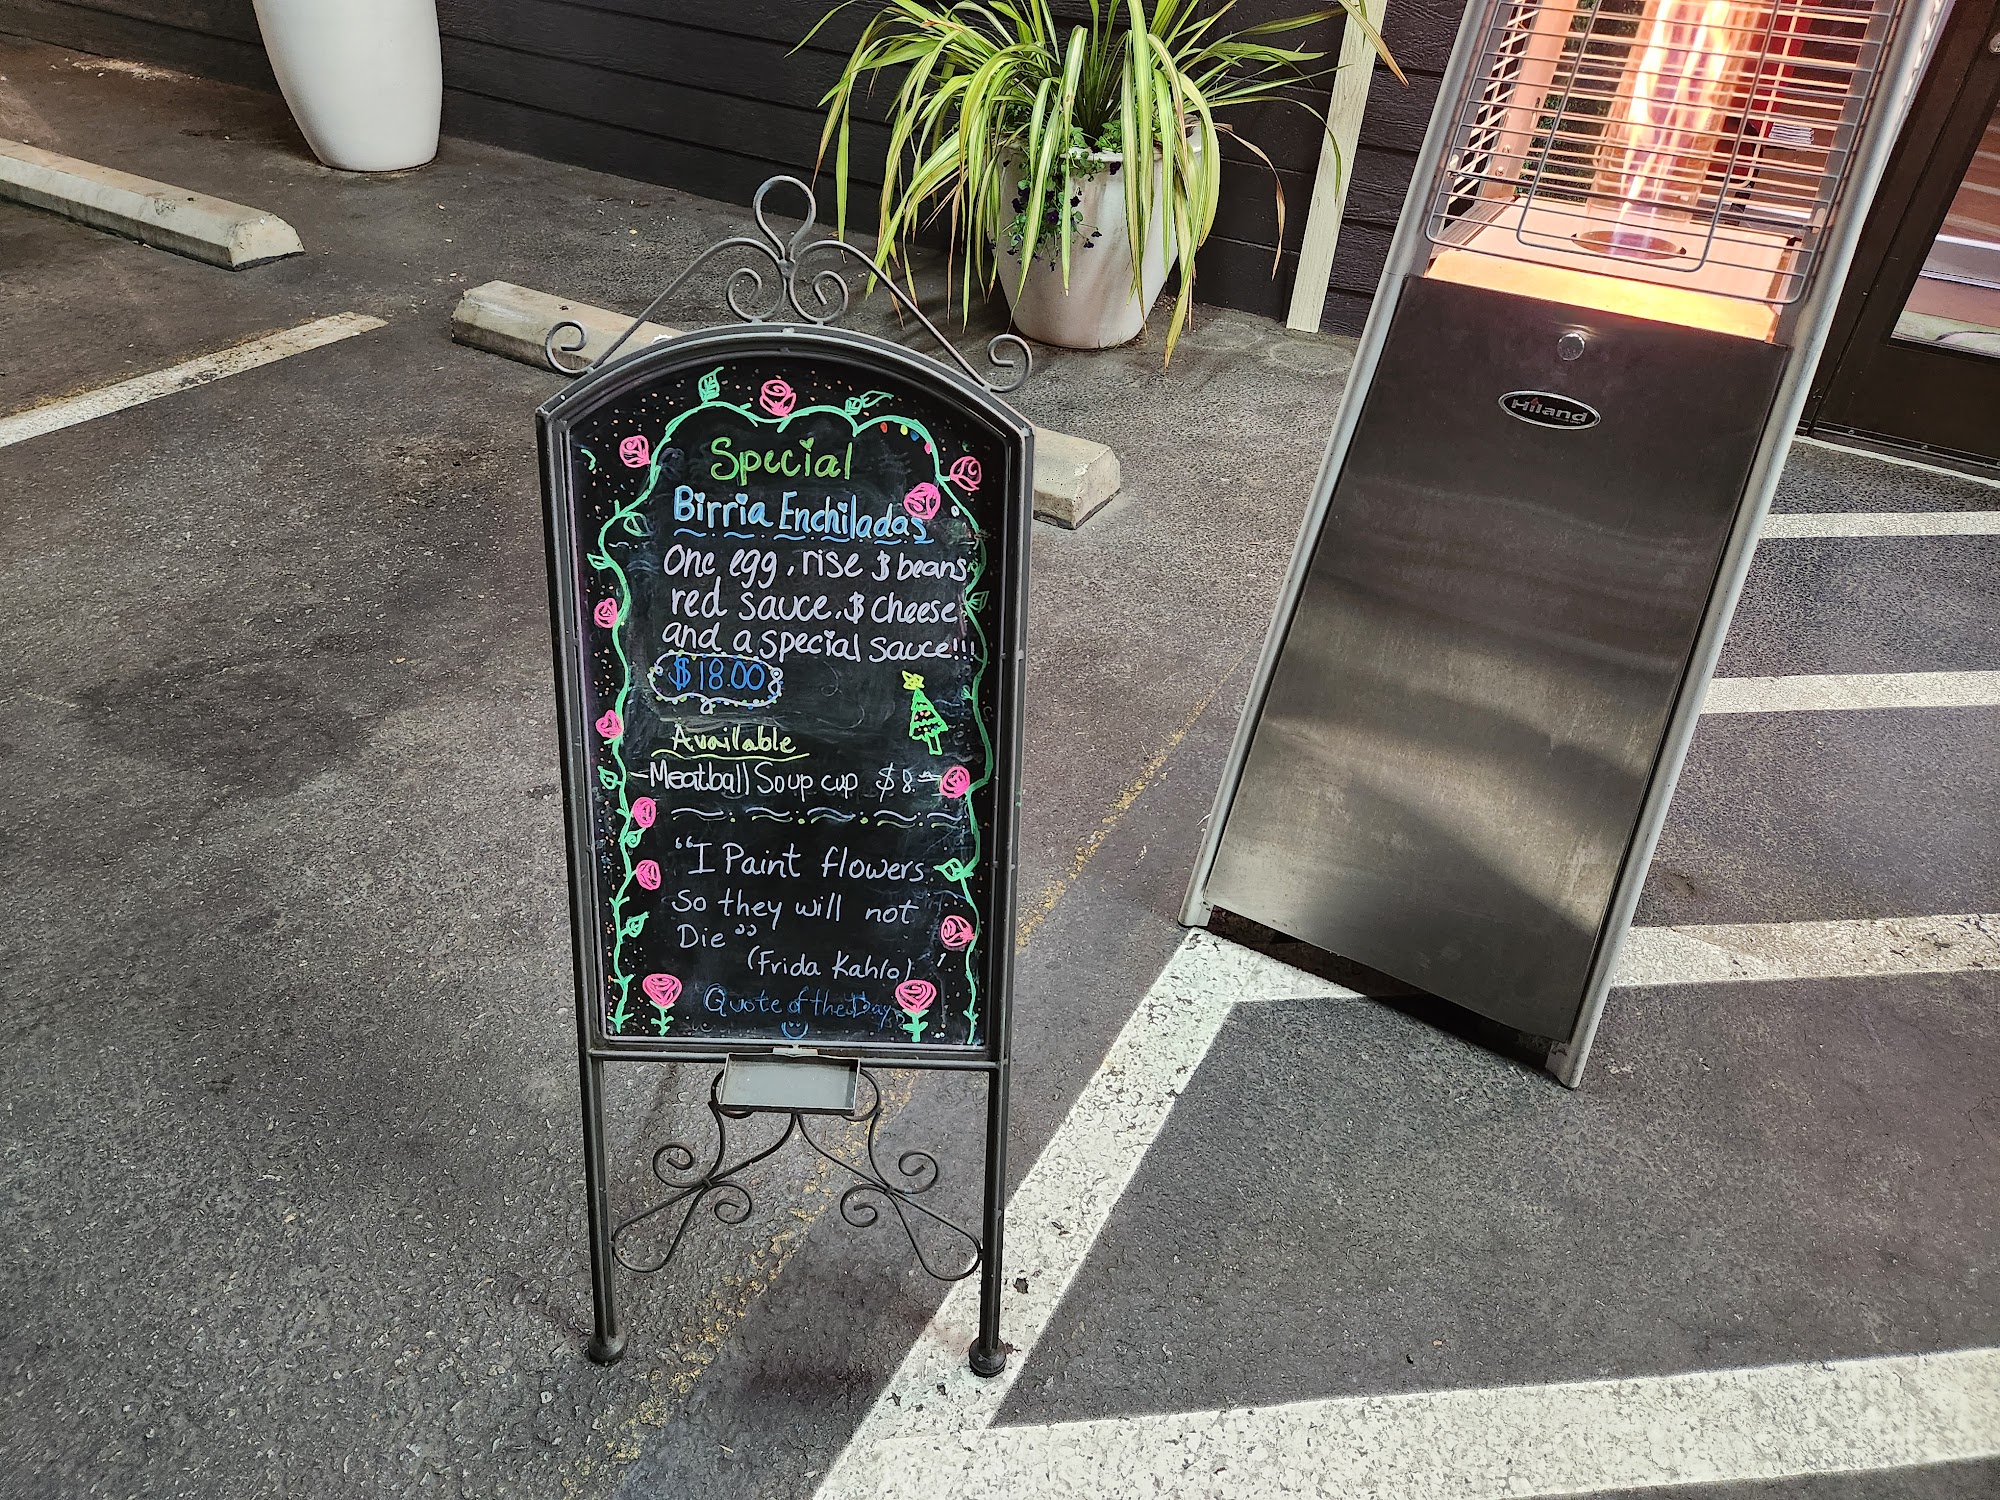 Special
Birria Enchiladas
One egg, rise $ beans
red sauce, $ cheese
and a special sauce!!!
$18.00
Available
-Meatball Soup cup $8.00
"I Paint flowers
So they will not
Die"
(Frida Kahlo)
Quote of the Day
Hiland